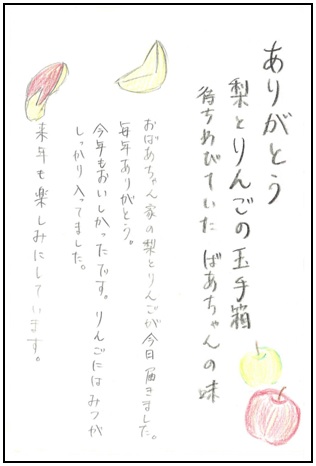 ありがとう
梨とりんごの玉手箱
待ちわびていた ばあちゃんの味
おばあちゃん家の梨とりんごが今日届きました。
毎年ありがとう。
今年もおいしかったです。りんごにはみつが
しっかり入ってました。
来年も楽しみにしています。